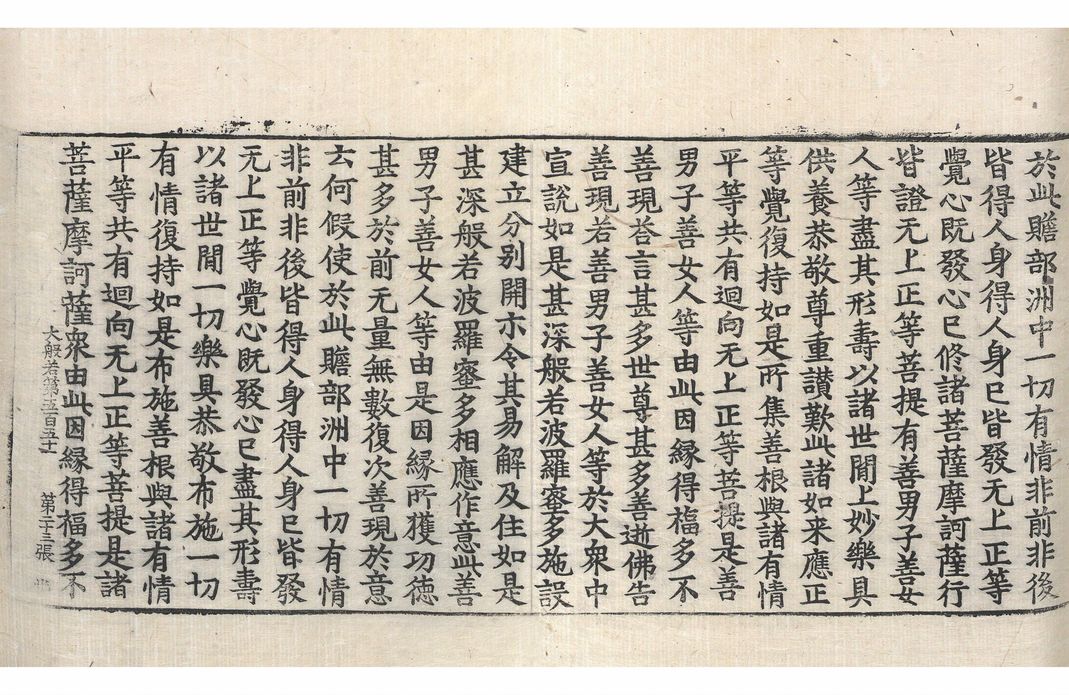 於此贍部洲中一切有情非前非後
皆得人身得人身已皆發无上正等
覺心既發心已修諸菩薩摩訶薩行
皆證无上正等菩提有善男子善女
人等盡其形壽以諸世閒上妙樂具
供養恭敬尊重讃歎此諸如来應正
等覺復持如是所集善根與諸有情
平等共有迴向无上正等菩提是善
男子善女人等由此因緣得福多不
善現荅言甚多世尊甚多善逝佛告
善現若善男子善女人等於大衆中
宣説如是甚深般若波羅蜜多施設
建立分别開示令其易解及住如是
甚深般若波羅蜜多相應作意此善
男子善女人等由是因緣所獲功徳
甚多於前无量無數復次善現於意
云何假使於此贍部洲中一切有情
非前非後皆得人身得人身已皆發
无上正等覺心既發心已盡其形壽
以諸世閒一切樂具恭敬布施一切
有情復持如是布施善根與諸有情
平等共有迴向无上正等菩提是諸
菩薩摩訶薩衆由此因緣得福多不
大般若第五百五十 第二十三張